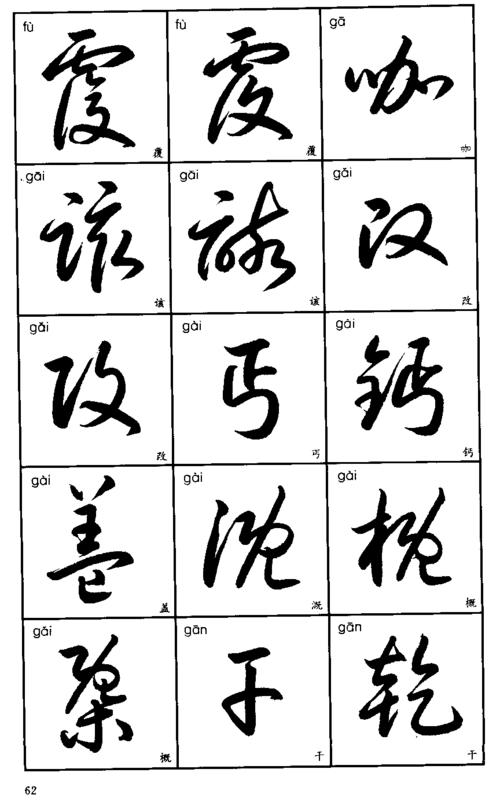 fù fù gā
覆 覆 咖
覆 覆 咖
.gāi gāi gǎi
该 该 改
该 该 改
gǎi gài gài
改 丐 钙
改 丐 钙
gài gài gài
盖 溉 概
盖 溉 概
gǎi gān gān
概 干 乾
概 干 干
62